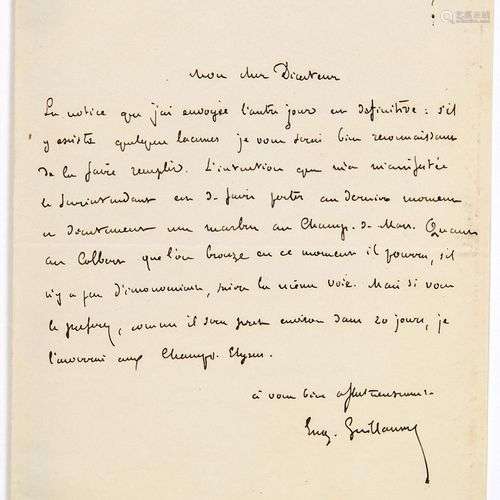 Mon cher Directeur
La notice que j'ai envoyée l'autre jour est définitive : s'il
y existe quelques lacunes je vous serai bien reconnaissant
de la faire remplir. L'intention que m'a manifestée
le Surintendant est de faire porter au dernier moment
et directement un marbre au Champ-de-Mars. Quant
au Colbert que l'on bronze en ce moment il pourra, s'il
n'y a pas d'inconvénient, suivre la même voie. Mais si vous
le préférez, comme il sera prêt environ dans 20 jours, je
l'enverrai aux Champs-Elysées.
à vous bien affectueusement
Eug. Guillaume